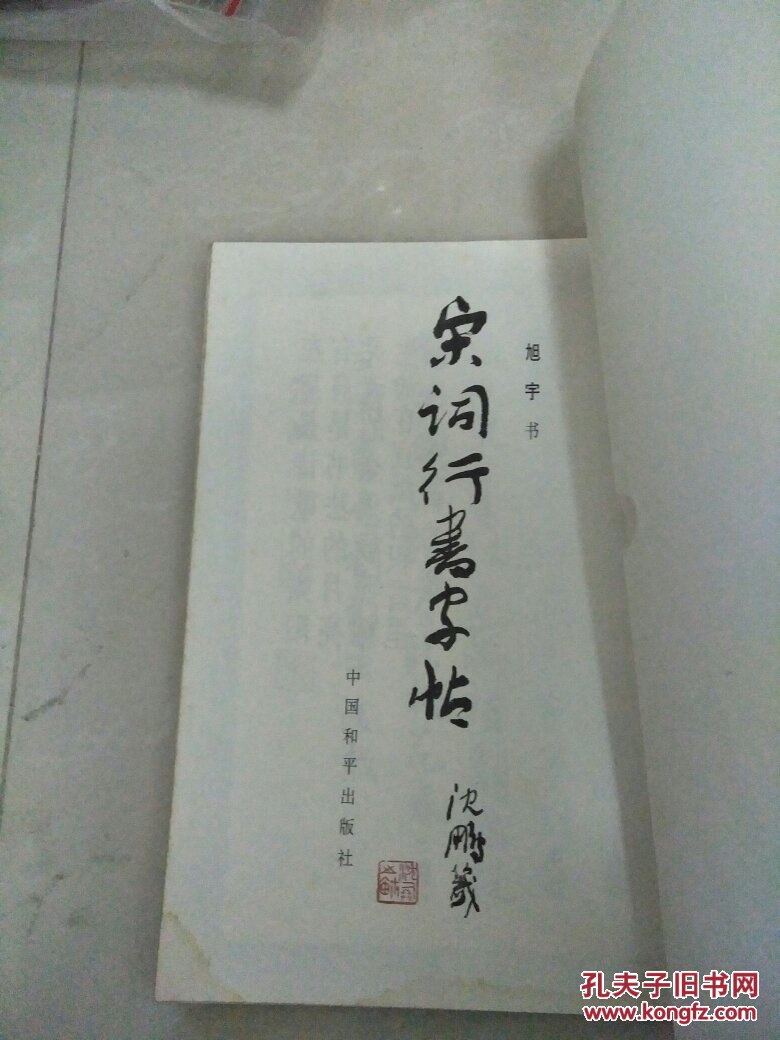 旭宇书
宋词行書字帖
沈鹏签
中国和平出版社
孔夫子旧书网
www.kongfz.com